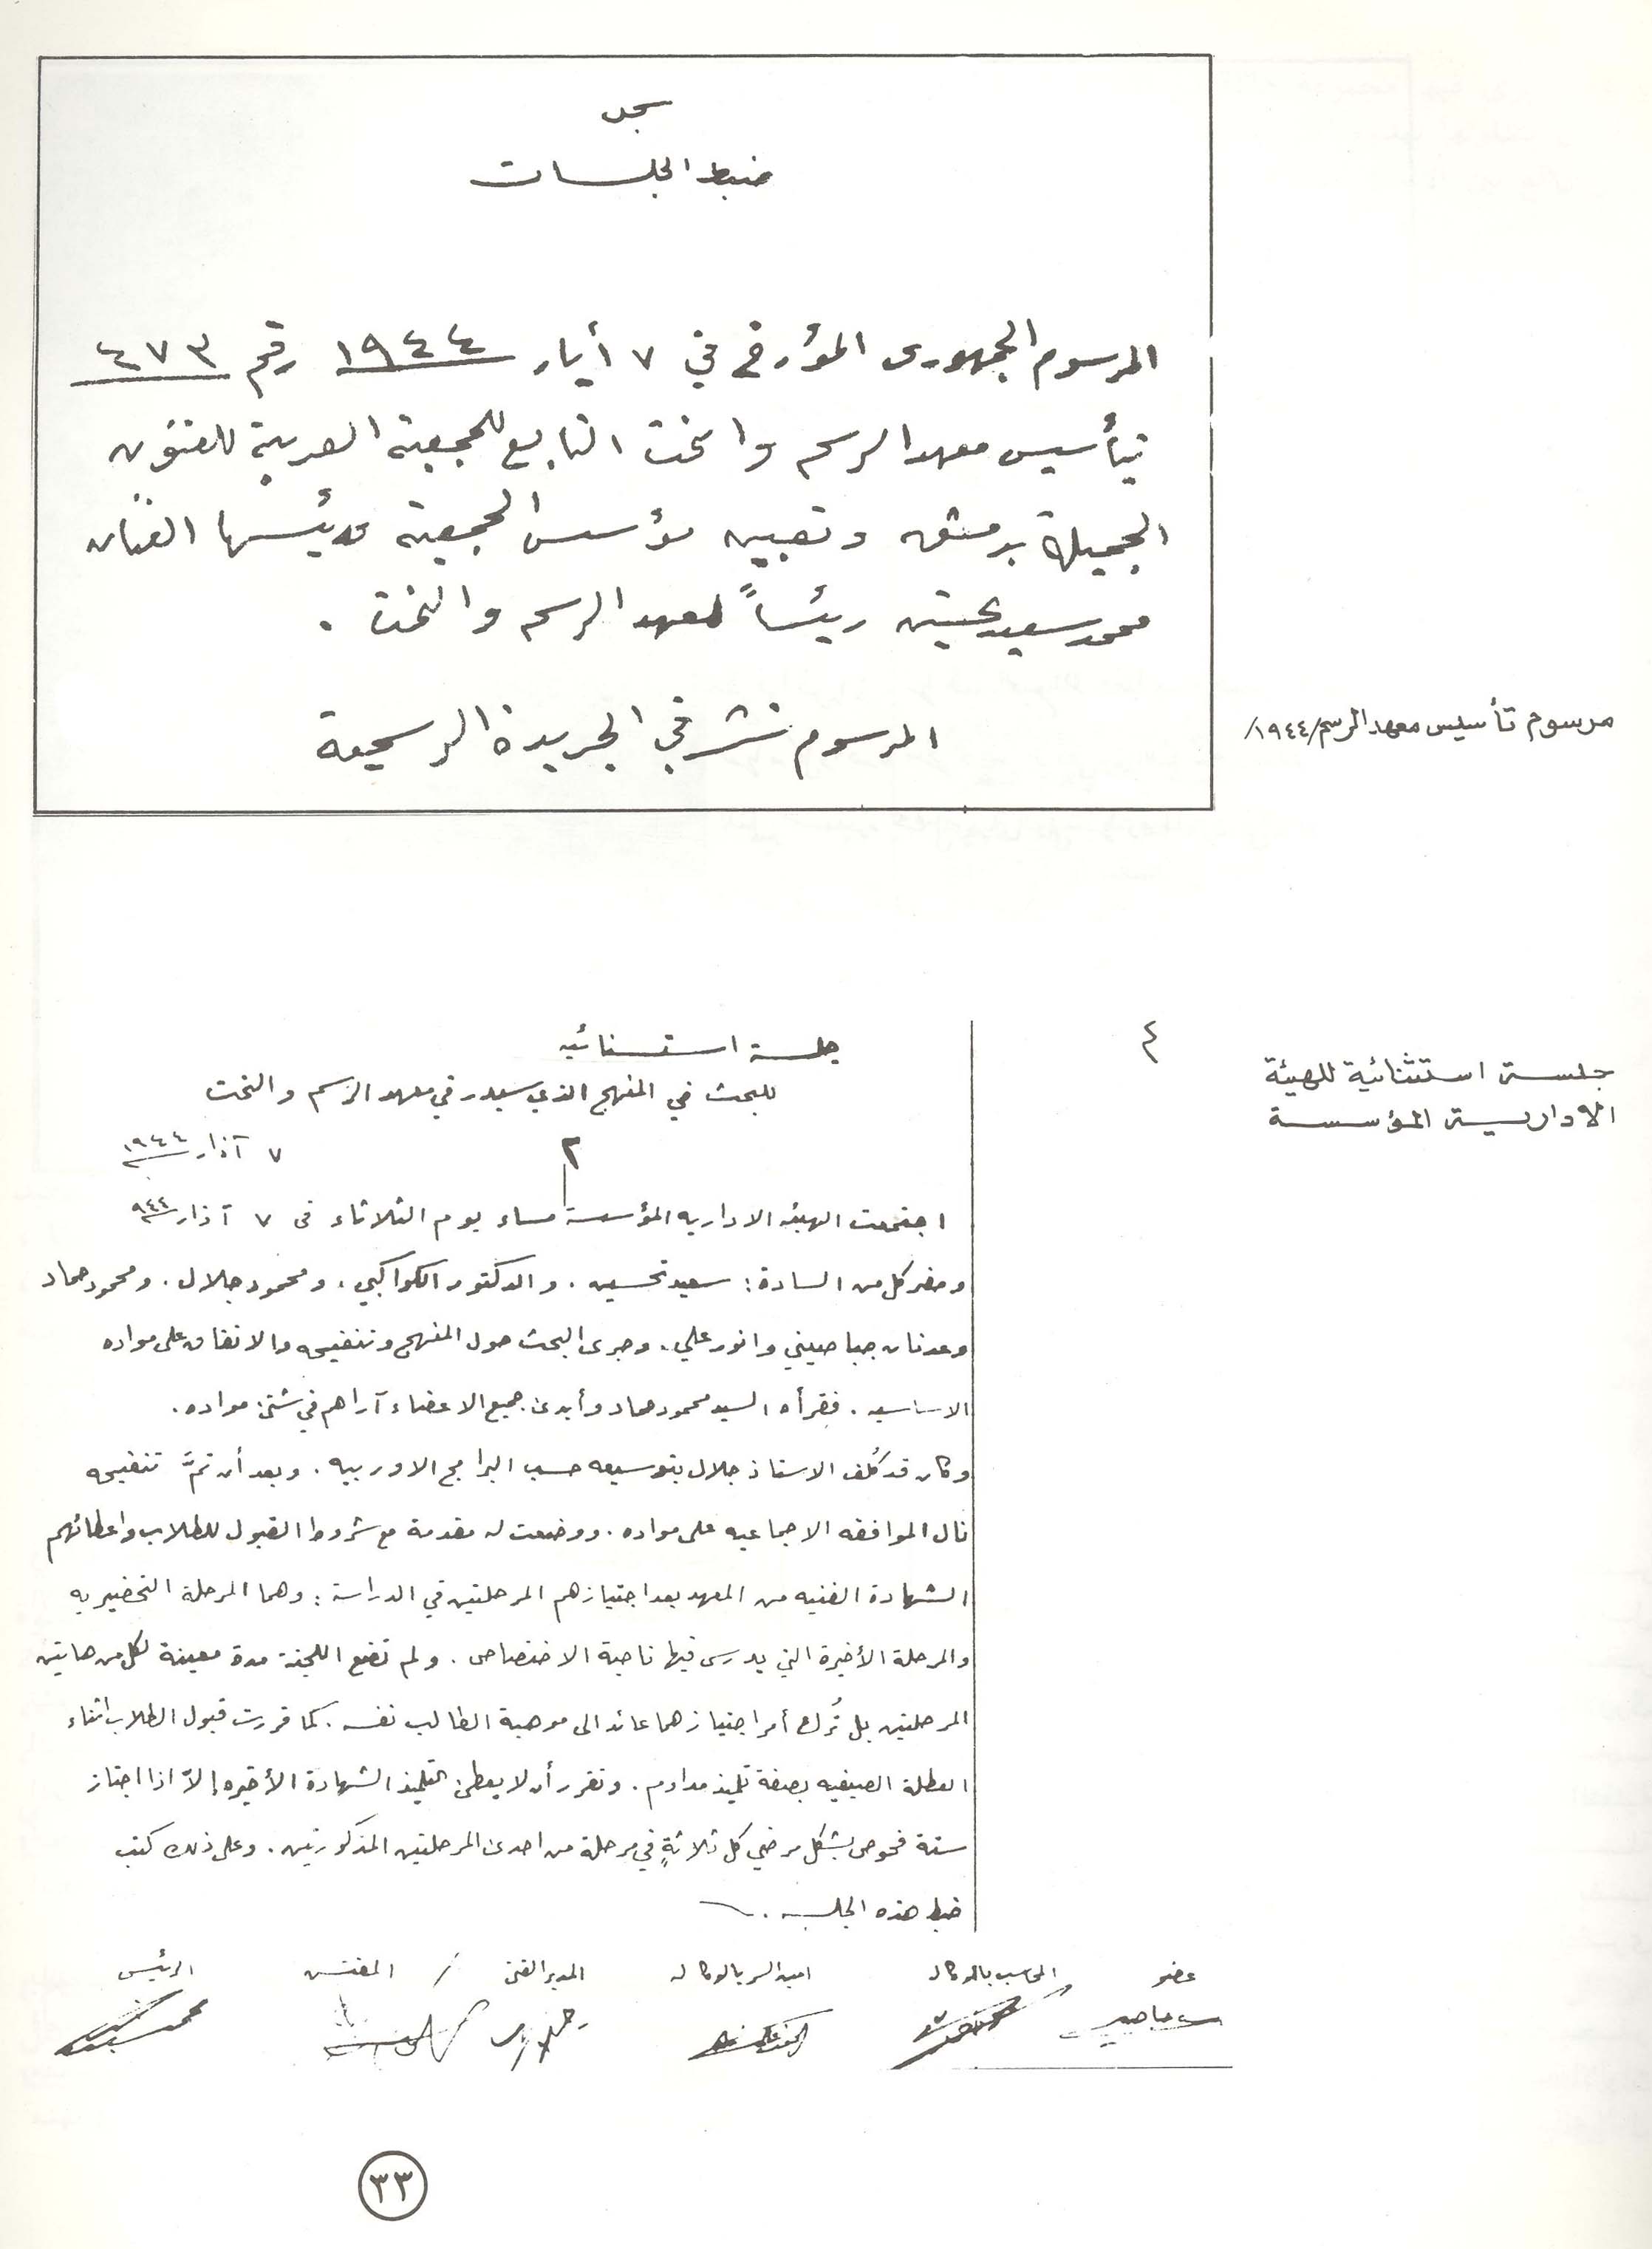 سجل
ضبط الجلسات
المرسوم الجمهورى المؤرخ في ٧ أيار ١٩٤٤ رقم ٤٧٣
بتأسيس معهد الرسم والنحت التابع للجمعية العربية للفنون
الجميلة بدمشق وتعيين مؤسس الجمعية ورئيسها الفنان
محمد سعيد تحسين رئيساً لمعهد الرسم والنحت .
المرسوم نشر في الجريدة الرسمية
مرسوم تأسيس معهد الرسم /١٩٤٤/
٤
جلسة استثنائية للهيئة
الادارية المؤسسة
جلسة استثنائيه
للبحث في المنهج الذي سيدرس في معهد الرسم والنحت
٢
٧ آذار ١٩٤٤
اجتمعت الهيئه الاداريه المؤسسة مساء يوم الثلاثاء فى ٧ آذار ٩٤٤
وحضر كل من السادة : سعيد تحسين . والدكتور الكواكبي . ومحمود جلال . ومحمود حماد
وعدنان جباصيني وانور علي . وجرى البحث حول المنهج وتنقيحه والاتفاق على مواده
الاساسيه . فقرأه السيد محمود حماد وأبدى جميع الاعضاء آراهم في شتى مواده .
وكان قد كُلف الاستاذ جلال بتوسيعه حسب البرامج الاوربيه . وبعد أن تمَّ تنقيحه
نال الموافقه الاجماعيه على مواده . ووضعت له مقدمة مع شروط القبول للطلاب واعطائهم
الشهادة الفنيه من المعهد بعد اجتيازهم المرحلتين في الدراسة : وهما المرحلة التحضيريه
والمرحلة الأخيرة التي يدرس فيها ناحية الاختصاص . ولم تضع اللجنة مدة معينة لكل من هاتين
المرحلتين بل تُرك أمر اجتيازهما عائد الى موهبة الطالب نفسه . كما قررت قبول الطلاب اثناء
العطلة الصيفيه بصفة تلميذ مداوم . وتقرر أن لا يعطى التلميذ الشهادة الأخيره إلاّ اذا اجتاز
ستة فحوص بشكل مرضي كل ثلاثةٍ في مرحلة من احدى المرحلتين المذكورتين . وعلى ذلك كتب
ضبط هذه الجلسه .
عضو المحاسب بالوكاله امين السر بالوكاله المدير الفنى / المفتش الرئيس
٣٣